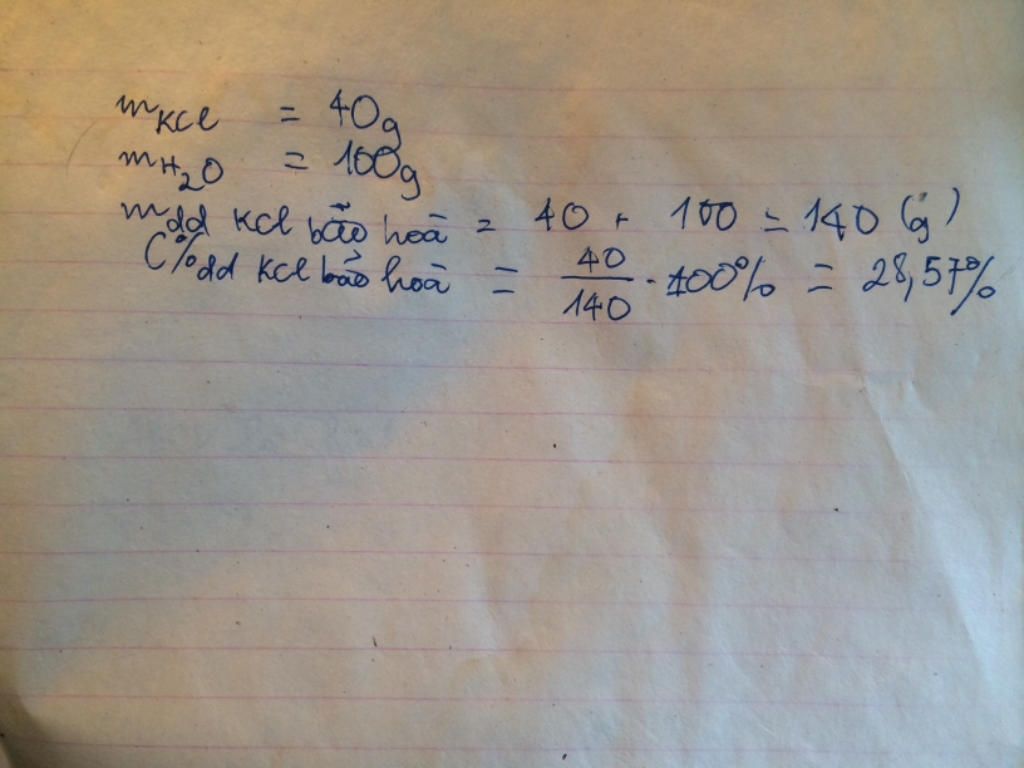 mKCl = 40g
mH2O = 100g
mdd KCl bão hoà = 40 + 100 = 140 (g)
C%dd KCl bảo hoà = 40/140 . 100% = 28,57%